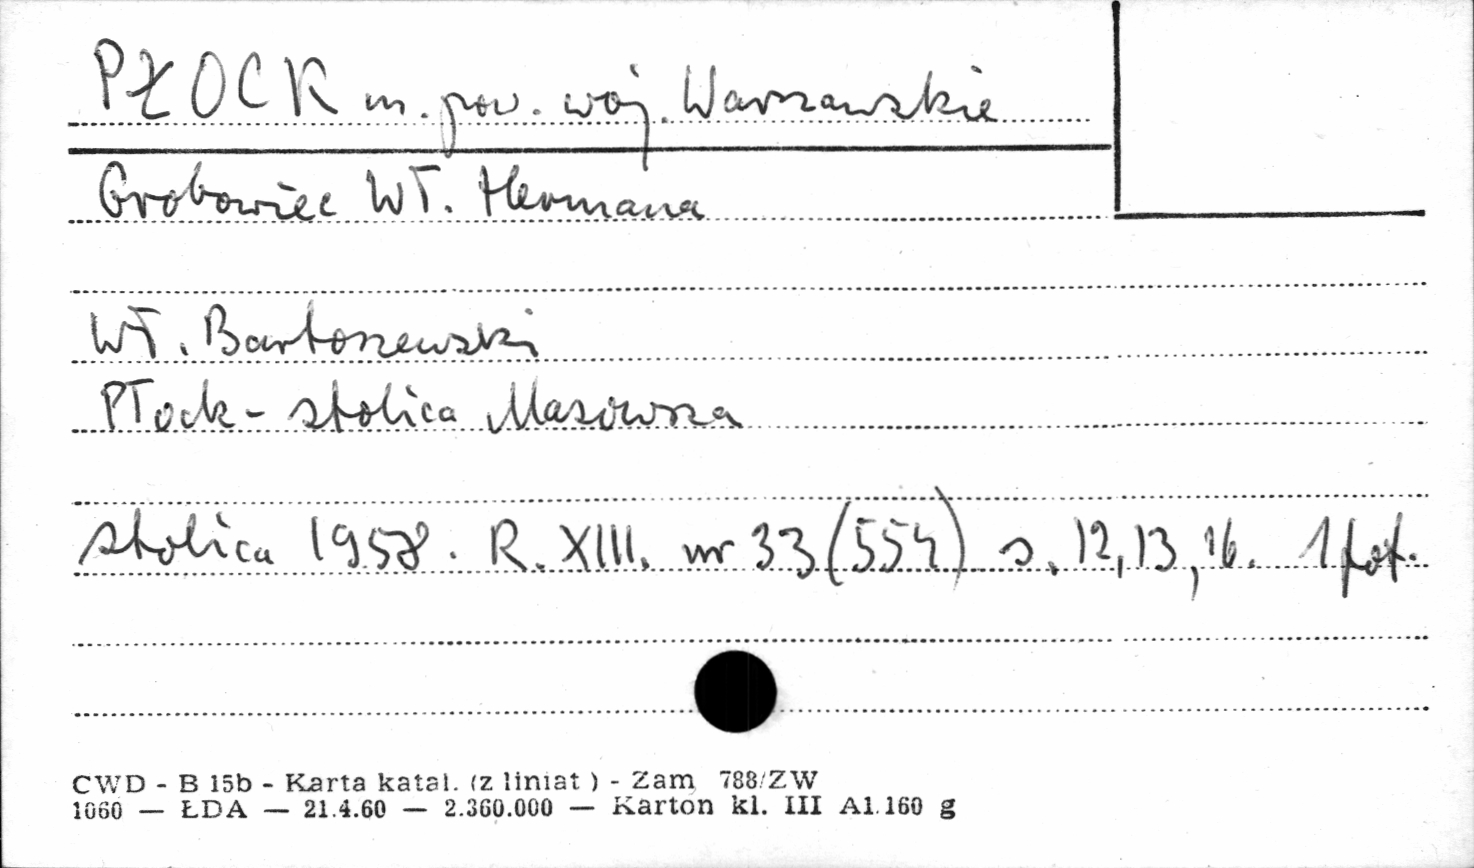 PŁOCK m. pow. woj. Warszawskie
Grobowiec Wł. Hermana
Wł. Bartoszewski
Płock - stolica Mazowsza
Stolica 1958. R. XIII. nr 33 (554) s. 12, 13, 16. 1 fot.
CWD - B 15b - Karta katal. (z liniat ) - Zam. 788/ZW
1060 — ŁDA — 21.4.60 — 2.360.000 — Karton kl. III A1.160 g